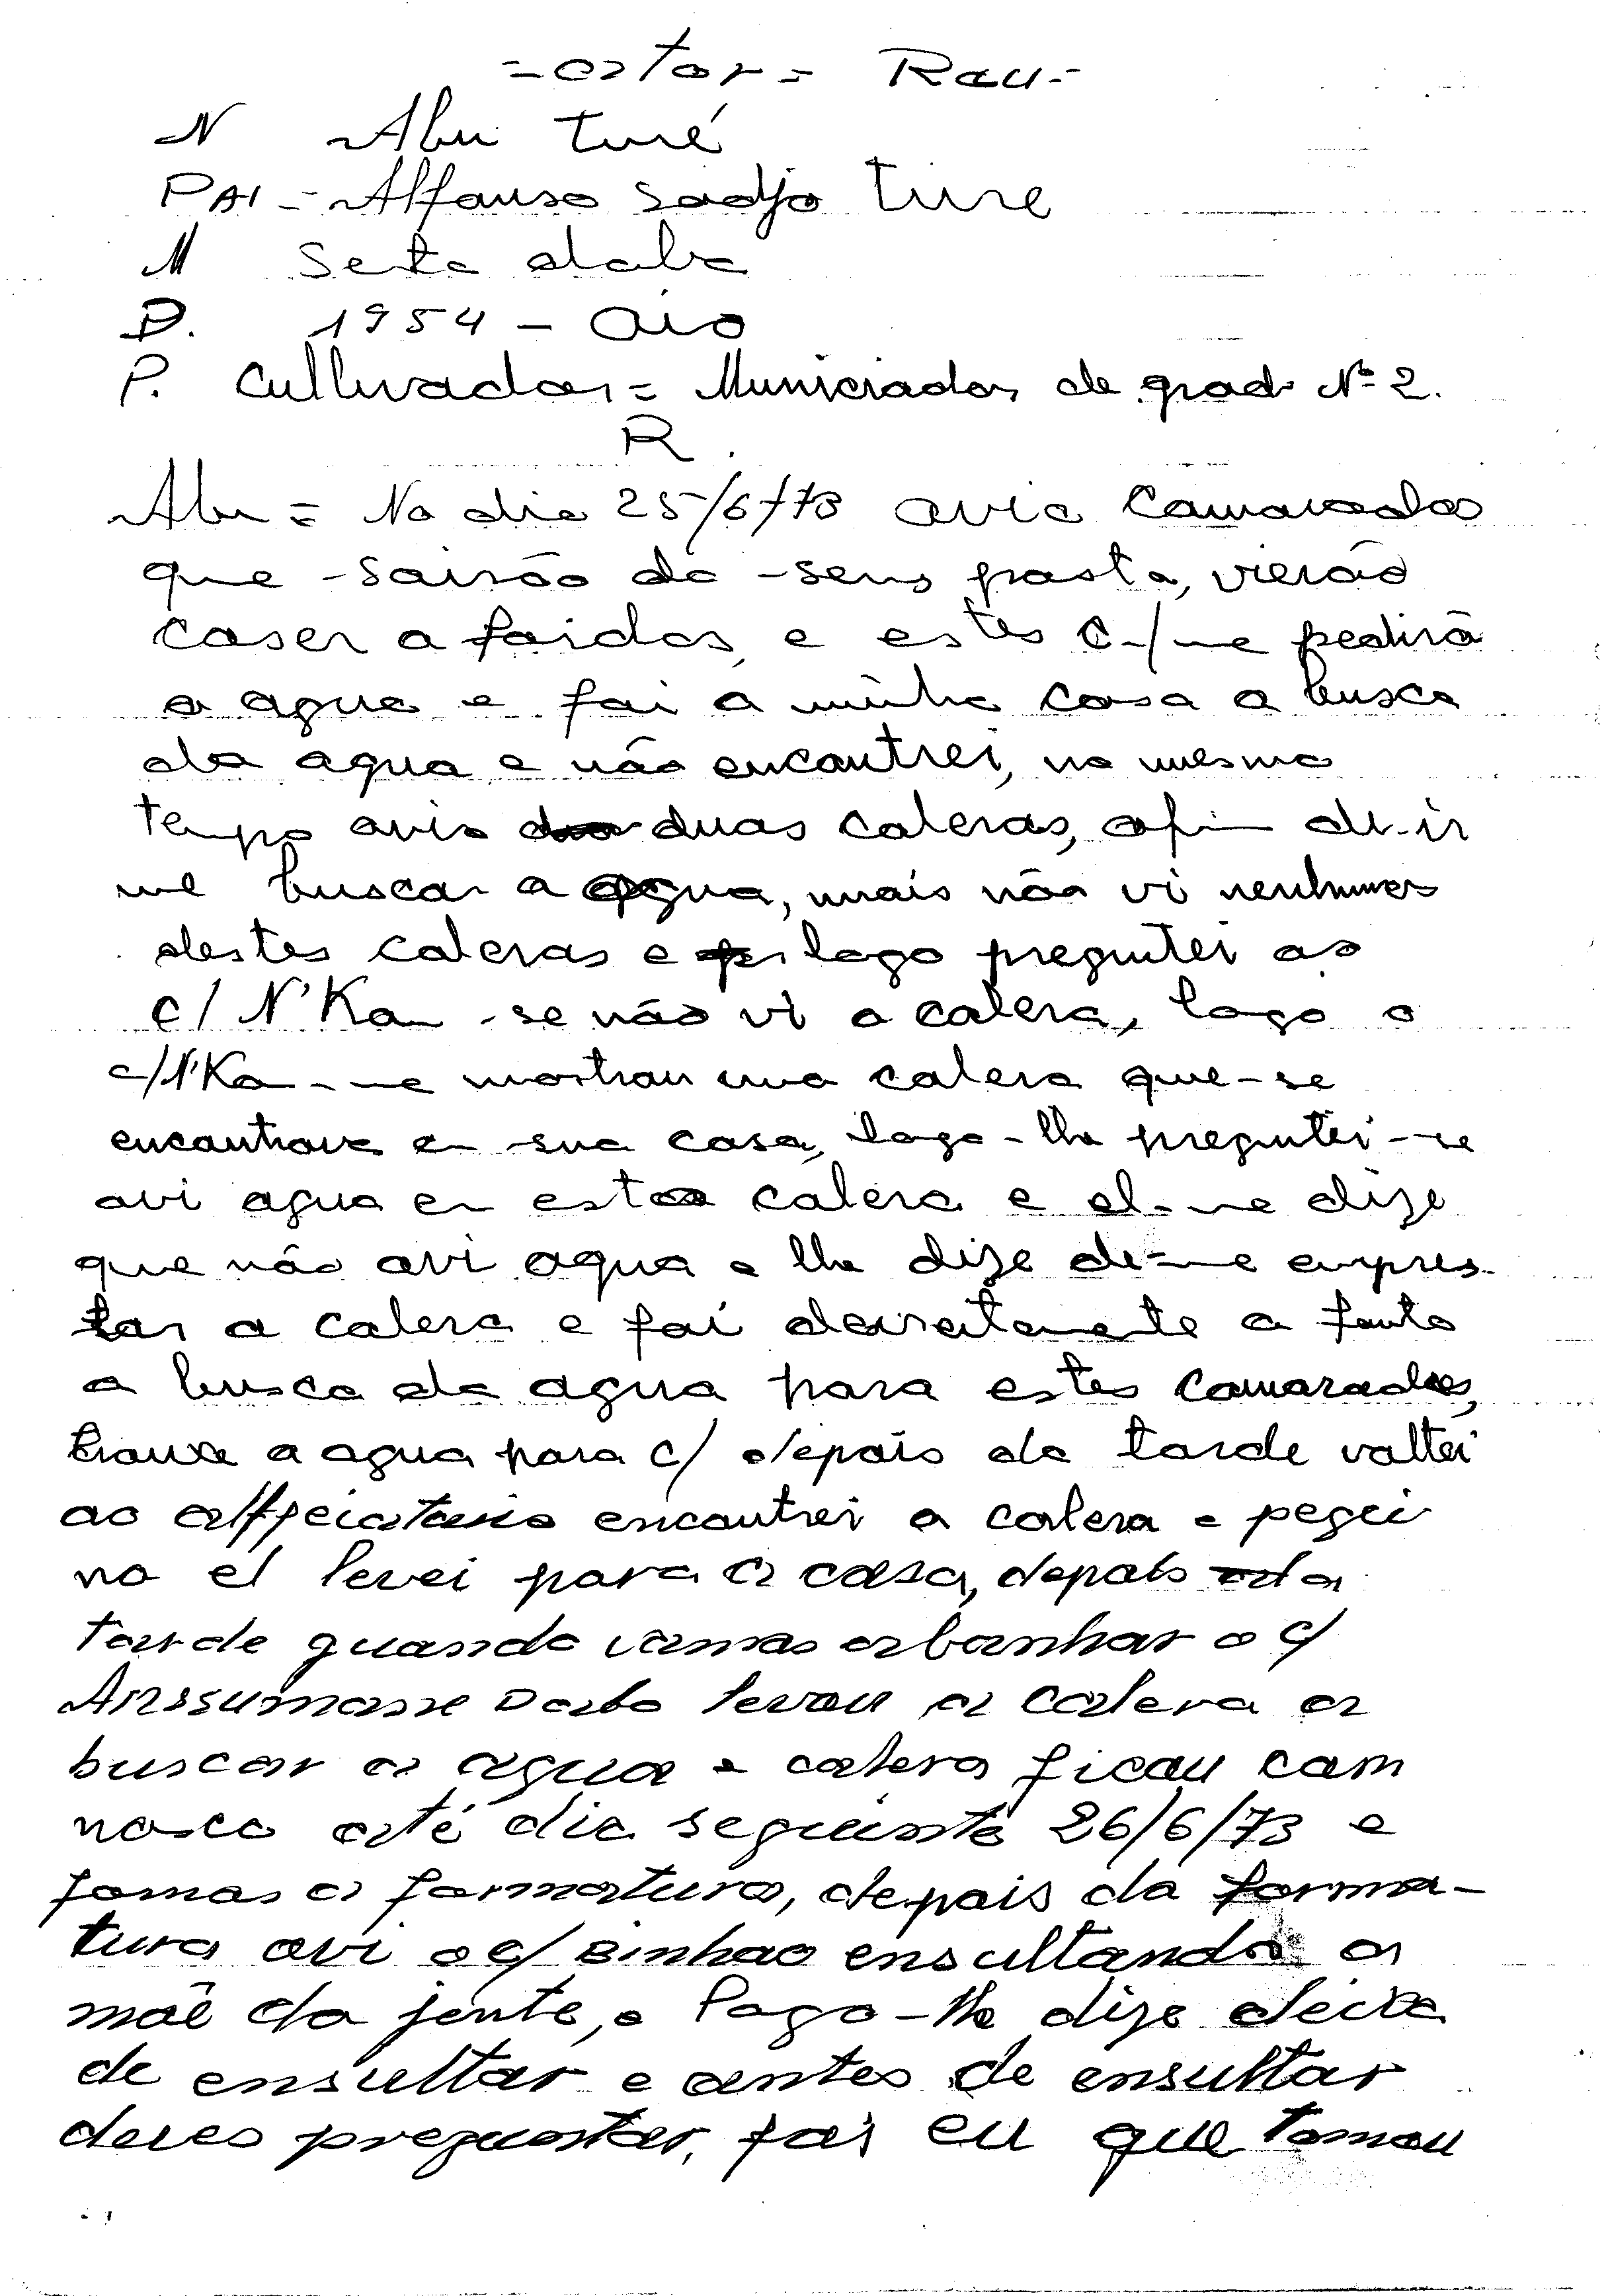 = ator = Rau =
N Abu Turé
PAI - Alfauso sadjo Ture
M Seta daba
D. 1954 - Oio
P. Cultivador = Municiador de grad. Nº 2.
R.
Abu = No dia 25/6/73 avia Camaradas
que -sairão da -seus pasta, vierão
caser a faidos, e estes C-/me pedirã
a agua e fai a minha casa a busca
da agua e não encautrei, no mesmo
tempo avia duas caleras, afim de-ir
me buscar a agua, mais não vi nenhumas
destes caleras e logo preguntei ao
c/ N'Ka- se não vi a calera, logo o
c/N'Ka- me mostrau uma calera que-se
encautrava en sua casa, logo-lha preguntei-se
avi agua en esta calera e el-me dize
que não avi agua e lha dize de-me empres-
tar a calera e fai deireitamente a fante
a busca da agua para estes camaradas,
trauxe a agua para c/ depais da tarde valtei
ao encautrei a calera e peguei
na el levei para a casa, depais da
tarde quando vamas abanhar o c/
Anssumane Dabo levau a calera a
buscar a agua e calera ficau cam
nasco até dia seguinte 26/6/73 e
famas a farmatura, depais da farma-
tura avi o c/ Binhao ensultando a
mãe da jente, e lago-lhe dize deixa
de ensultar e antes de ensultar
deves preguntar, fai eu que tamau